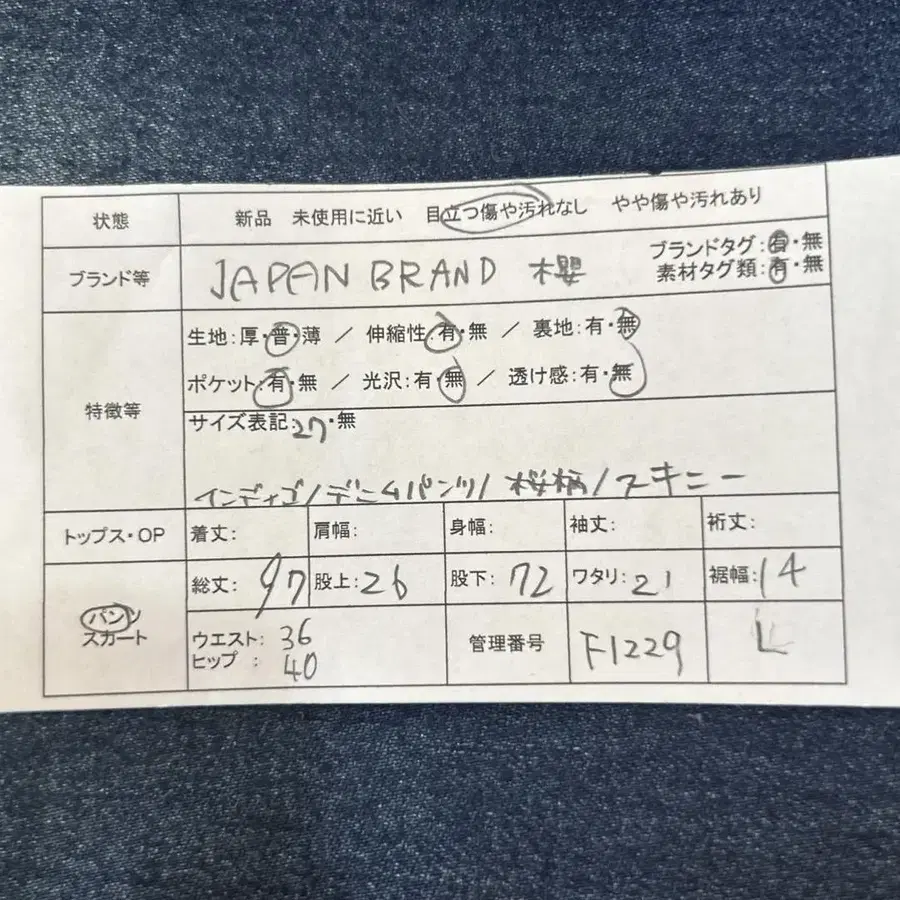 状態 新品 未使用に近い 目立つ傷や汚れなし やや傷や汚れあり
ブランド等 JAPAN BRAND 櫻 ブランドタグ:有・無
素材タグ類:有・無
特徴等 生地:厚・普・薄 / 伸縮性:有・無 / 裏地:有・無
ポケット:有・無 / 光沢:有・無 / 透け感:有・無
サイズ表記:27・無
インディゴ/デニムパンツ/桜柄/スキニー
トップス・OP 着丈: 肩幅: 身幅: 袖丈: 裄丈:
パンツ 総丈:97 股上:26 股下:72 ワタリ:21 裾幅:14
スカート
ウエスト:36 管理番号 F1229 L
ヒップ:40